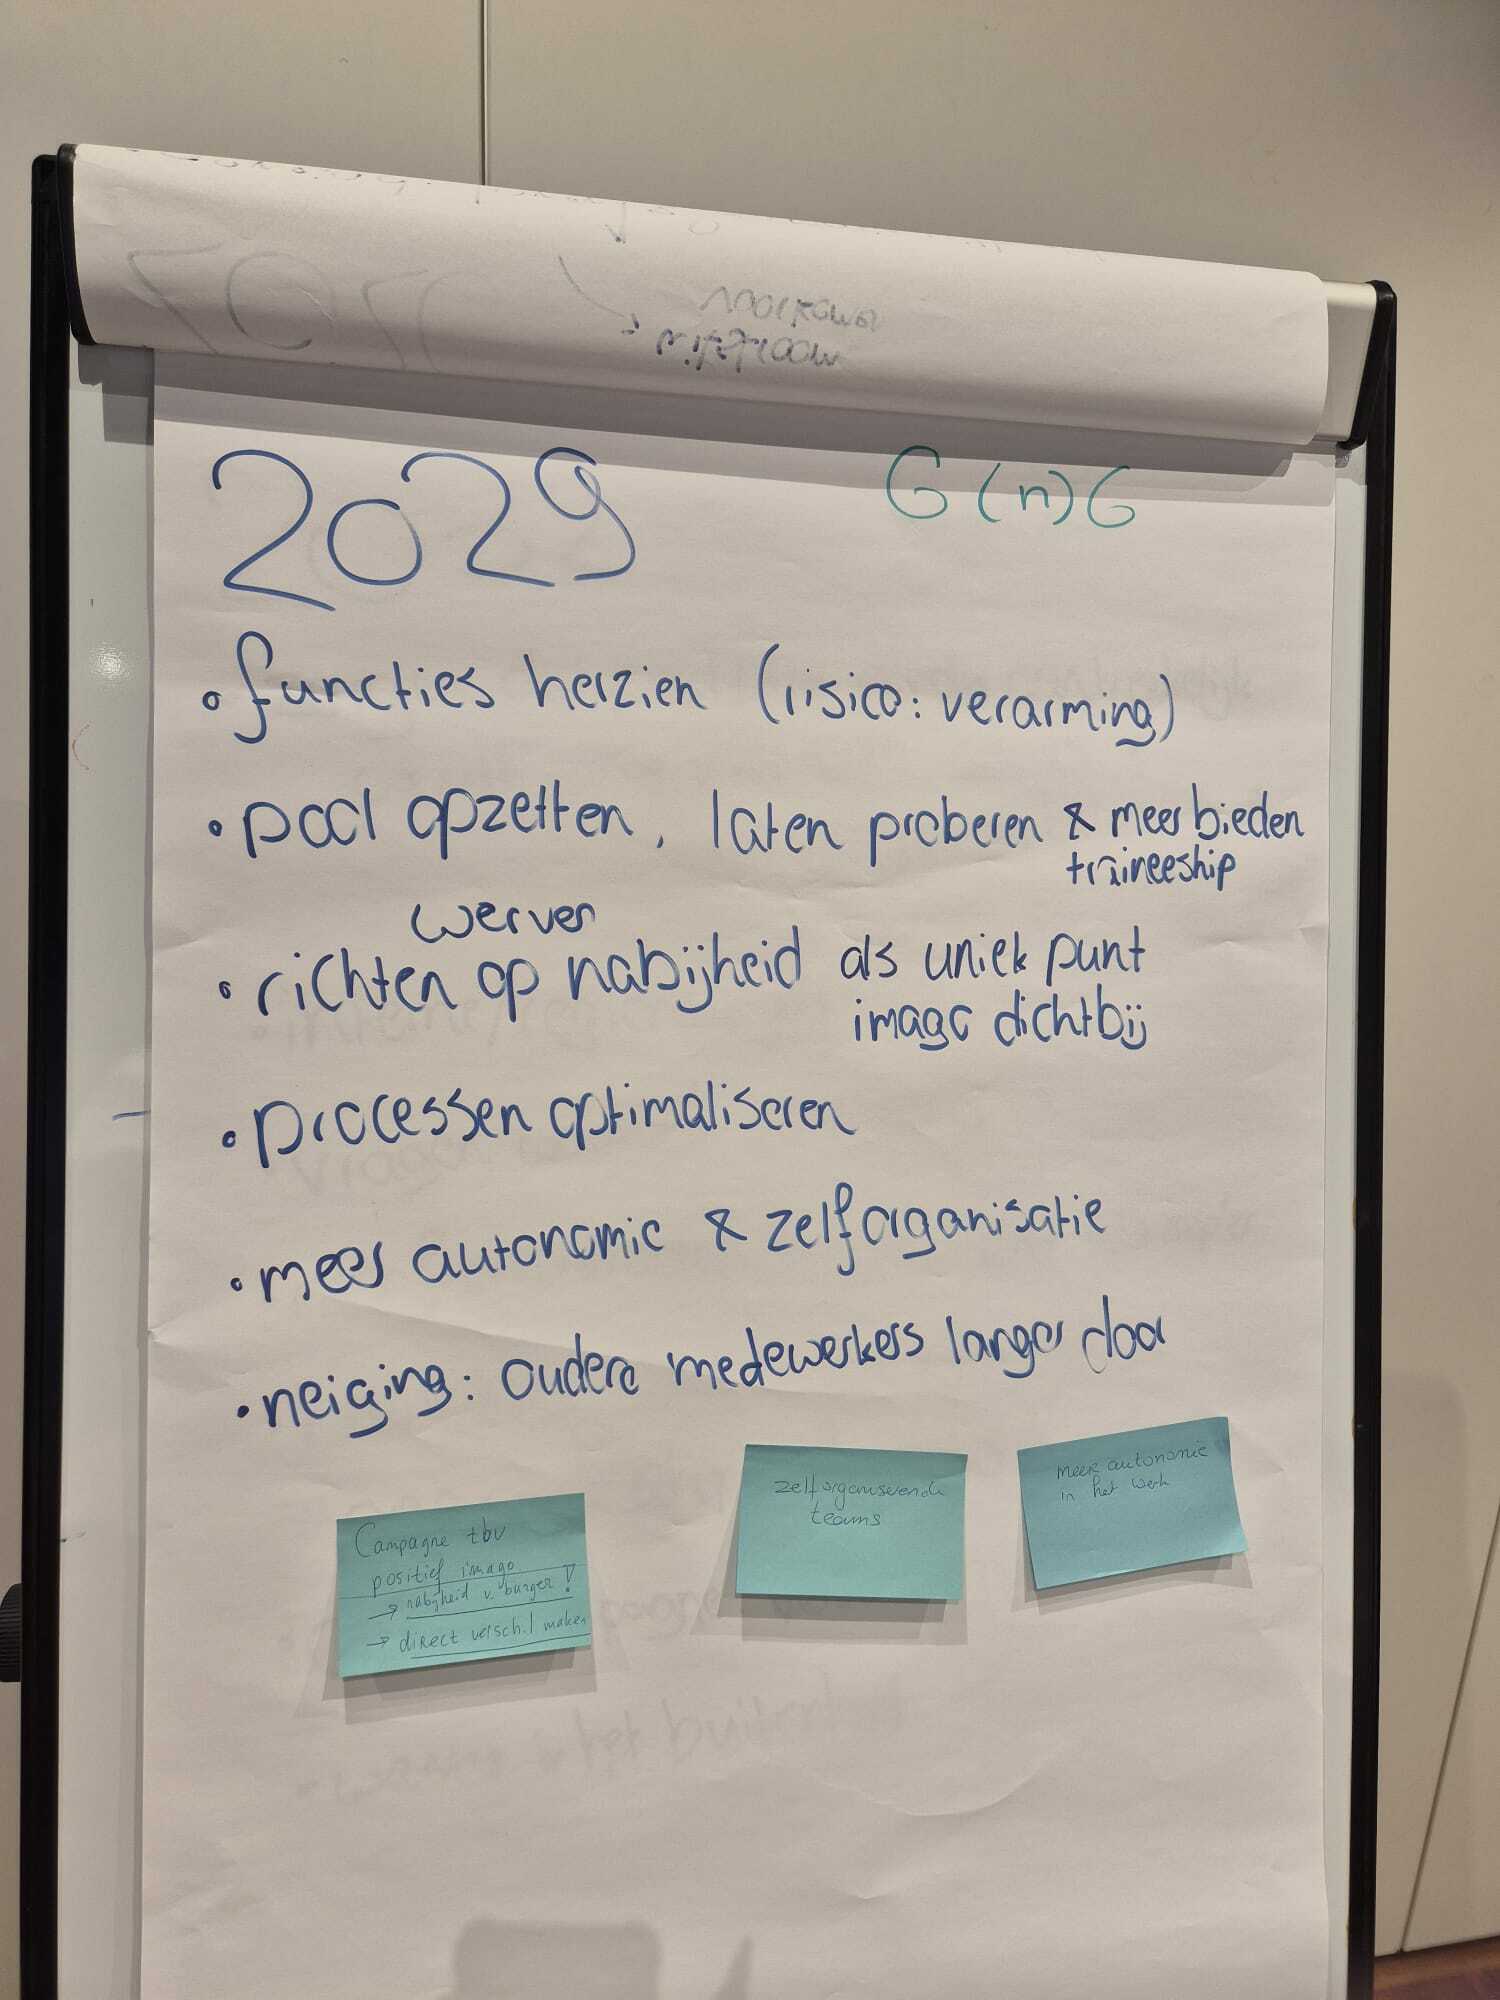 2029
G (n) G
• functies herzien (risico: verarming)
• pool opzetten, laten proberen & meer bieden
traineeship
werven
• richten op nabijheid als uniek punt
imago dichtbij
• processen optimaliseren
• meer autonomie & zelforganisatie
• neiging: oudere medewerkers langer door
Campagne tbv
positief imago
→ nabijheid v. burger!
→ direct verschil maken
zelforganiserende
teams
meer autonomie
in het werk